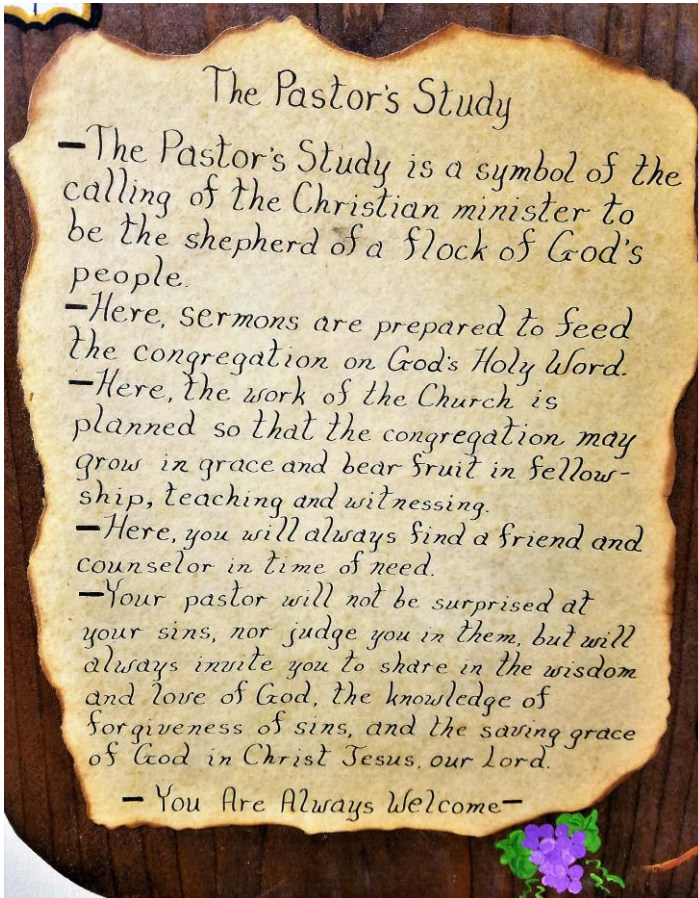 The Pastor's Study
—The Pastor's Study is a symbol of the
calling of the Christian minister to
be the shepherd of a flock of God's
people.
—Here, sermons are prepared to feed
the congregation on God's Holy Word.
—Here, the work of the Church is
planned so that the congregation may
grow in grace and bear fruit in fellow-
ship, teaching and witnessing.
—Here, you will always find a friend and
counselor in time of need.
—Your pastor will not be surprised at
your sins, nor judge you in them, but will
always invite you to share in the wisdom
and love of God, the knowledge of
forgiveness of sins, and the saving grace
of God in Christ Jesus, our Lord.
—You Are Always Welcome—